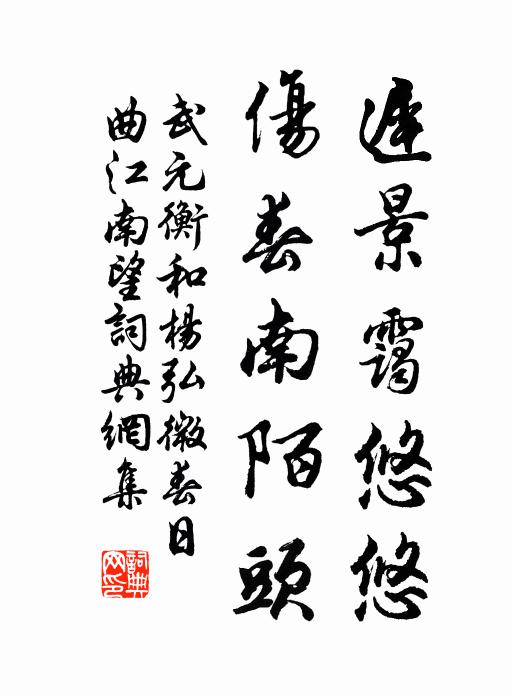 遲景靄悠悠
傷春南陌頭
武元衡和楊弘微春日
曲江南望詞典網集
詞典
网印